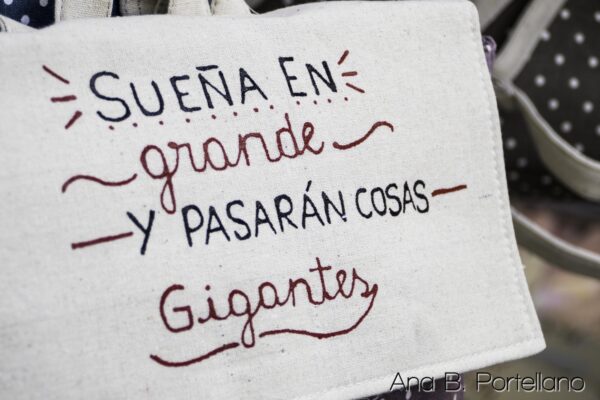 SUEÑA EN
grande
Y PASARÁN COSAS
Gigantes
Ana B. Portellano